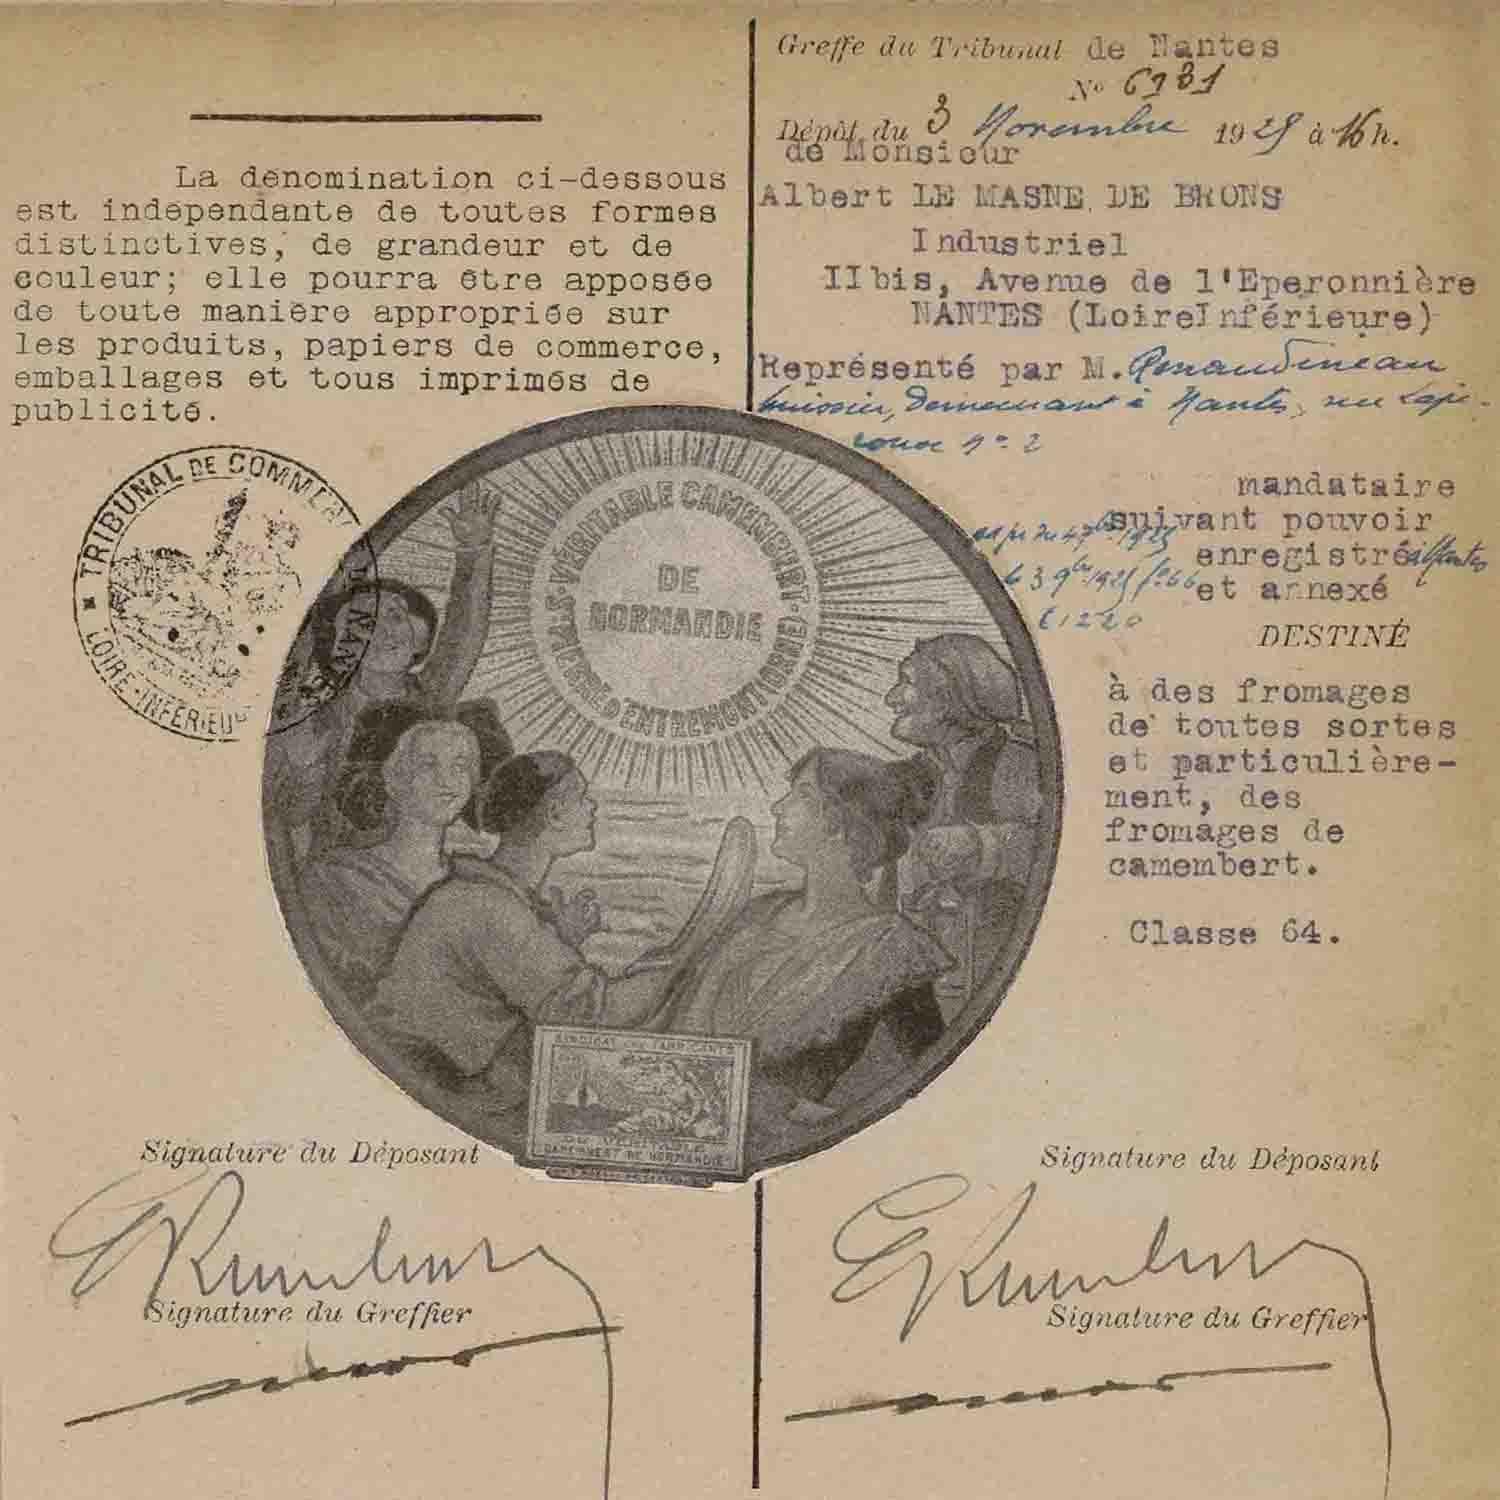 La denomination ci-dessous
est indépendante de toutes formes
distinctives, de grandeur et de
couleur; elle pourra être apposée
de toute manière appropriée sur
les produits, papiers de commerce,
emballages et tous imprimés de
publicité.
Greffe du Tribunal de Nantes
No 6131
Dépôt du 3 Novembre 1925 à 16 h.
de Monsieur
Albert LE MASNE DE BRONS
Industriel
IIbis, Avenue de l'Eperonnière
NANTES (LoireInférieure)
Représenté par M.
huissier, demeurant à Nantes, rue
no 2
mandataire
suivant pouvoir
enregistré à Nantes
et annexé
le 3 9bre 1925 fo 66
C 1220
DESTINÉ
à des fromages
de toutes sortes
et particulière-
ment, des
fromages de
camembert.
Classe 64.
TRIBUNAL DE COMMERCE DE NANTES
LOIRE-INFÉRIEURE
VÉRITABLE CAMEMBERT
DE
NORMANDIE
D'ENTREMONT
SYNDICAT DES FABRICANTS
DU VÉRITABLE
CAMEMBERT DE NORMANDIE
Signature du Déposant
Signature du Greffier
Signature du Déposant
Signature du Greffier